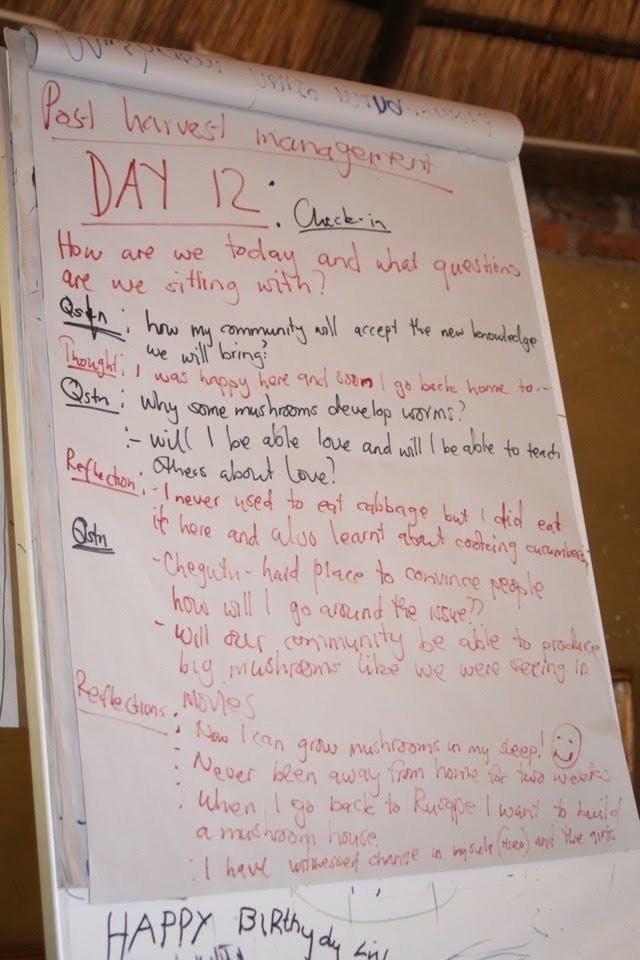 Post harvest management
DAY 12 : Check-in
How are we today and what questions
are we sitting with?
Qstn : how my community will accept the new knowledge
we will bring?
Thought : I was happy here and soon I go back home to...
Qstn : Why some mushrooms develop worms?
:- will I be able love and will I be able to teach
others about love?
Reflection : - I never used to eat cabbage but I did eat
it here and also learnt about cooking cucumbers,
Qstn
- Chegutu - hard place to convince people
how will I go around the issue??
- Will our community be able to produce
big mushrooms like we were seeing in
movies
Reflections : Now I can grow mushrooms in my sleep!
: Never been away from home for two weeks
: When I go back to Rusape I want to build
a mushroom house
: I have witnessed change in myself (theo) and the girls
HAPPY BIRthydy